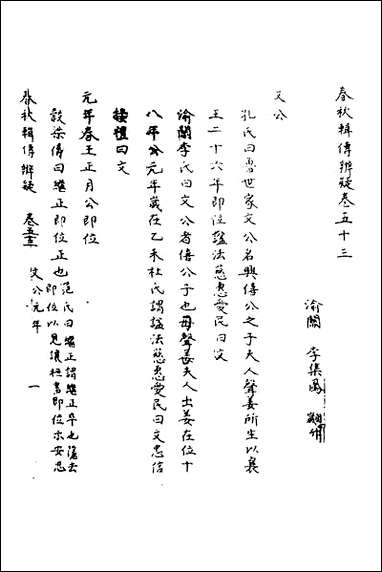 春秋輯傳辨疑卷五十三
渝關 李集鳳 翽升
文公
孔氏曰魯世家文公名興僖公之子夫人聲姜所生以襄
王二十六年即位諡法慈惠愛民曰文
渝關李氏曰文公者僖公子也母聲姜夫人出姜在位十
八年公元年歲在乙未杜氏謂諡法慈惠愛民曰文忠信
接禮曰文
元年春王正月公即位
穀梁傳曰繼正即位正也 范氏曰繼正謂繼正卒也隱去
即位以見讓桓書即位示安忍
春秋輯傳辨疑 卷五十三 文公元年 一